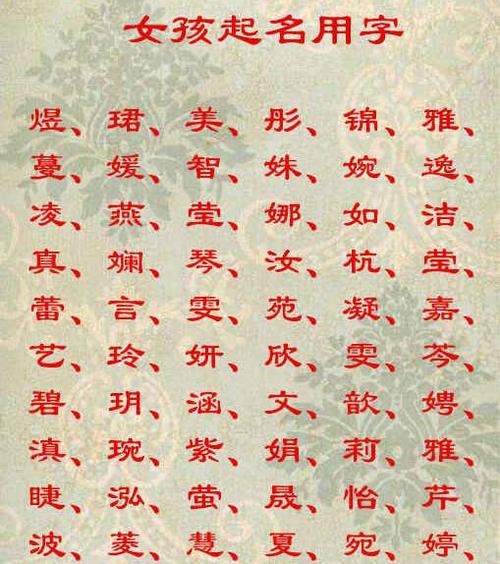 女孩起名用字
煜、珺、美、彤、锦、雅、
蔓、媛、智、姝、婉、逸、
凌、燕、莹、娜、如、洁、
真、娴、琴、汝、杭、莹、
蕾、言、雯、苑、凝、嘉、
艺、玲、妍、欣、雯、芩、
碧、玥、涵、文、歆、娉、
滇、琬、紫、娟、莉、雅、
睫、泓、萤、晟、怡、芹、
波、菱、慧、夏、宛、婷、